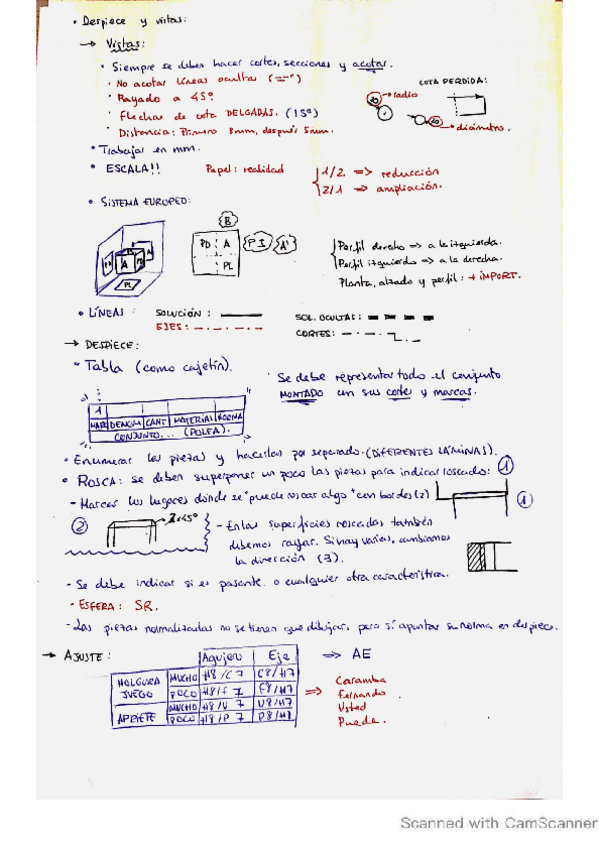 • Despiece y vistas:
→ Vistas:
• Siempre se deben hacer cortes, secciones y acotar.
· No acotar líneas ocultas (=="")
· Rayado a 45º.
· Flechas de cota DELGADAS. (15º)
· Distancia: Primero 8mm, después 5mm.
COTA PERDIDA:
radio
diámetro.
• Trabajar en mm.
• ESCALA!! Papel: realidad
1/2 => reducción
2/1 => ampliación.
• SISTEMA EUROPEO:
B
PD A PI A'
PL
A
PL
Perfil derecho => a la izquierda.
Perfil izquierdo => a la derecha.
Planta, alzado y perfil: + IMPORT.
• LÍNEAS SOLUCIÓN: SOL. OCULTAS:
EJES: CORTES:
→ DESPIECE:
• Tabla (como cajetín).
· Se debe representar todo el conjunto
MONTADO con sus cortes y marcas.
1
MARC DENOM CANT MATERIAL NORMA
CONJUNTO... (POLEA).
• Enumerar las piezas y hacerlas por separado. (DIFERENTES LÁMINAS).
• ROSCA: se deben superponer un poco las piezas para indicar roscado: 1
- Marcar los lugares donde se "puede roscar algo" con bordes (2)
1
2
2x45º
- En las superficies roscadas también
debemos rayar. Si hay varias, cambiamos
la dirección (3).
- Se debe indicar si es pasante o cualquier otra característica.
- ESFERA: SR.
- Las piezas normalizadas no se tienen que dibujar, pero sí apuntar su norma en despiece.
→ AJUSTE: Agujero Eje => AE
HOLGURA JUEGO MUCHO H8/C7 C8/H7
POCO H8/F7 F8/H7
APRIETE MUCHO H8/U7 U8/H7
POCO H8/P7 P8/H7
=> Caramba
Fernando
Usted
Puede.
Scanned with CamScanner